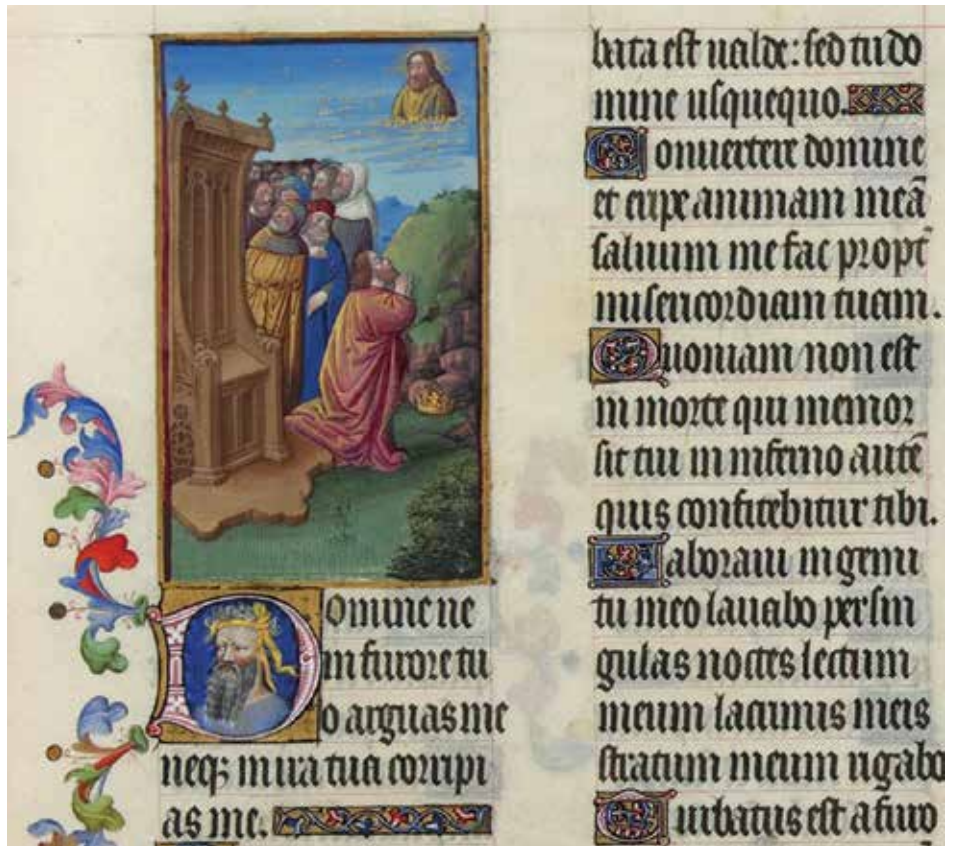 Domine ne
in furore tu
o arguas me
neqꝫ in ira tua corripi
as me.
bata est ualde: sed tu do
mine usquequo.
Conuertere domine
et eripe animam meā
saluum me fac propt̄
misericordiam tuam.
Quoniam non est
in morte qui memor
sit tui in inferno autē
quis confitebitur tibi.
Laboraui in gemi
tu meo lauabo per sin
gulas noctes lectum
meum lacrimis meis
stratum meum rigabo
Turbatus est a furo